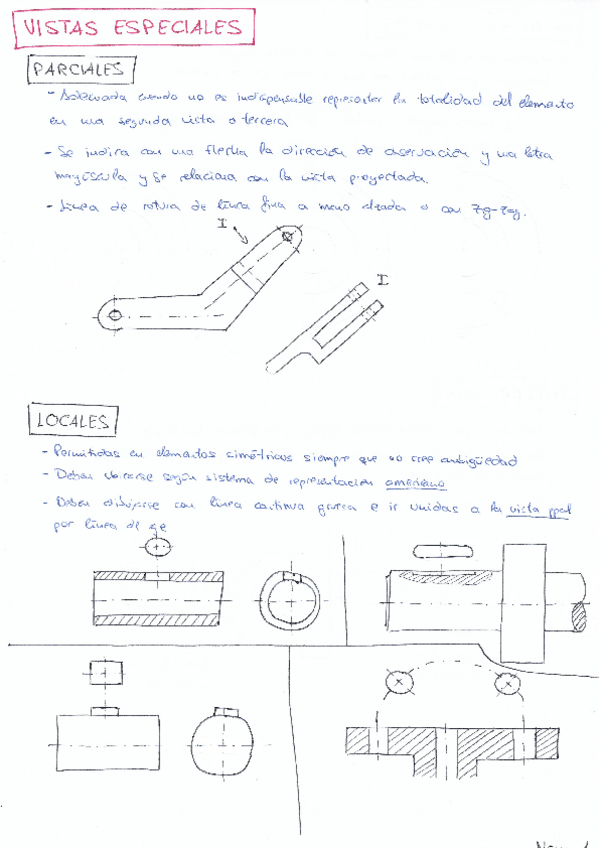 VISTAS ESPECIALES
PARCIALES
- Adecuada cuando no es indispensable representar la totalidad del elemento
en una segunda vista o tercera
- Se indica con una flecha la dirección de observación y una letra
mayúscula y se relaciona con la vista proyectada.
- Línea de rotura de línea fina a mano alzada o con zig-zag.
I
I
LOCALES
- Permitidas en elementos simétricos siempre que no cree ambigüedad
- Deben ubicarse según sistema de representación americano
- Deben dibujarse con línea continua gruesa e ir unidas a la vista ppal
por línea de eje